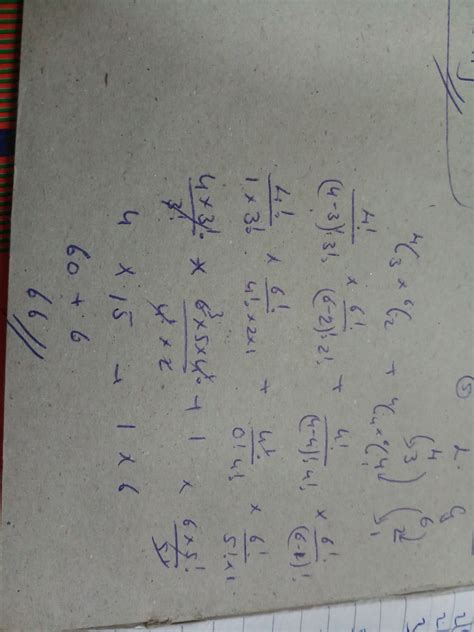 ⁴C₃ × ⁶C₂ + ⁴C₄ × ⁶C₁
4!/(4-3)! 3! × 6!/(6-2)! 2! + 4!/(4-4)! 4! × 6!/(6-1)!
4!/1 × 3! × 6!/4! × 2×1 + 4!/0! 4! × 6!/5! × 1
4 × 3!/3! × 6 × 5 × 4!/4! × 2 + 1 × 6 × 5!/5!
4 × 15 + 1 × 6
60 + 6
66 //